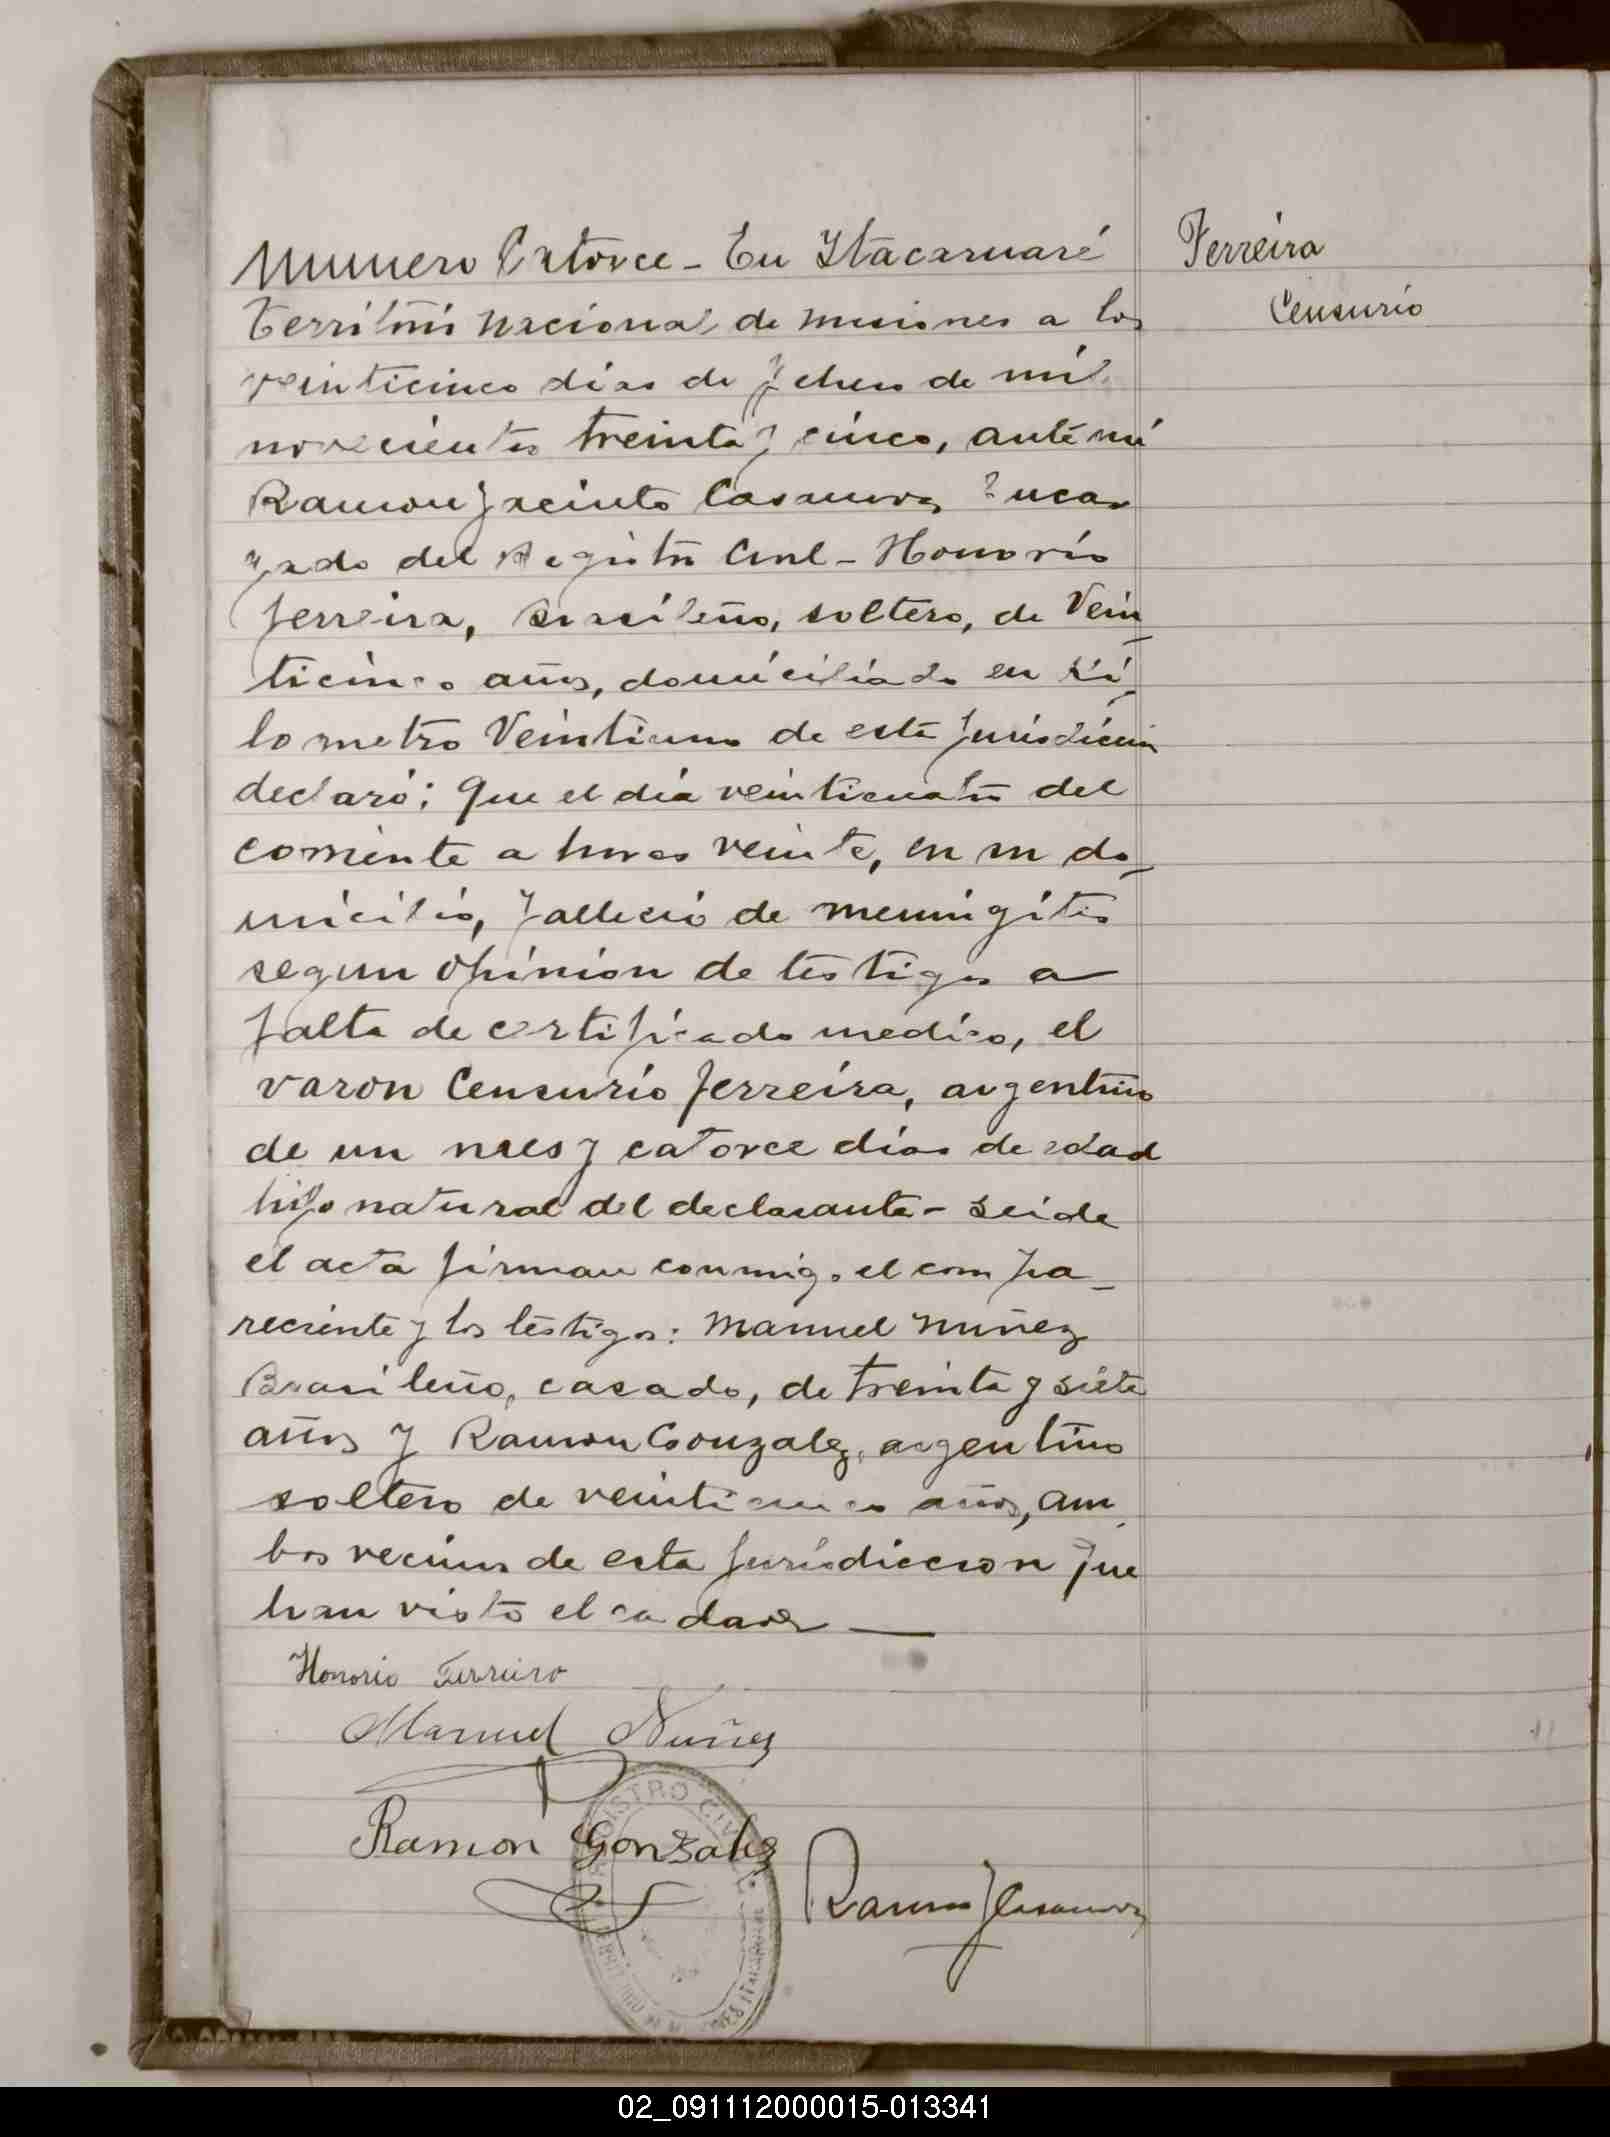 Numero Catorce - En Itacaruaré
Territorio Nacional de Misiones a los
veinticinco dias de Febrero de mil
novecientos treinta y cinco, ante mi
Ramon Jacinto Casanova, Encar
gado del Registro Civil - Honorio
Ferreira, Brasileño, soltero, de Vein
ticinco años, domiciliado en Ki-
lometro Veintiuno de esta Jurisdicion
declaró: Que el dia veinticuatro del
corriente a horas veinte, en su do-
micilio, fallecio de meningitis
segun opinion de testigos a
falta de certificado medico, el
varon Censurio Ferreira, argentino
de un mes y catorce dias de edad
hijo natural del declarante - Leida
el acta firman conmigo el compa-
reciente y los testigos: Manuel Nuñez
Brasileño, casado, de treinta y siete
años y Ramon Gonzalez, argentino
soltero de años, am
bos vecinos de esta Jurisdiccion que
han visto el cadaver —
Honorio Ferreira
Manuel Nuñez
Ramon Gonzalez
Ramon J Casanova
Ferreira
Censurio
REGISTRO CIVIL
ITACARUARE
02_091112000015-013341